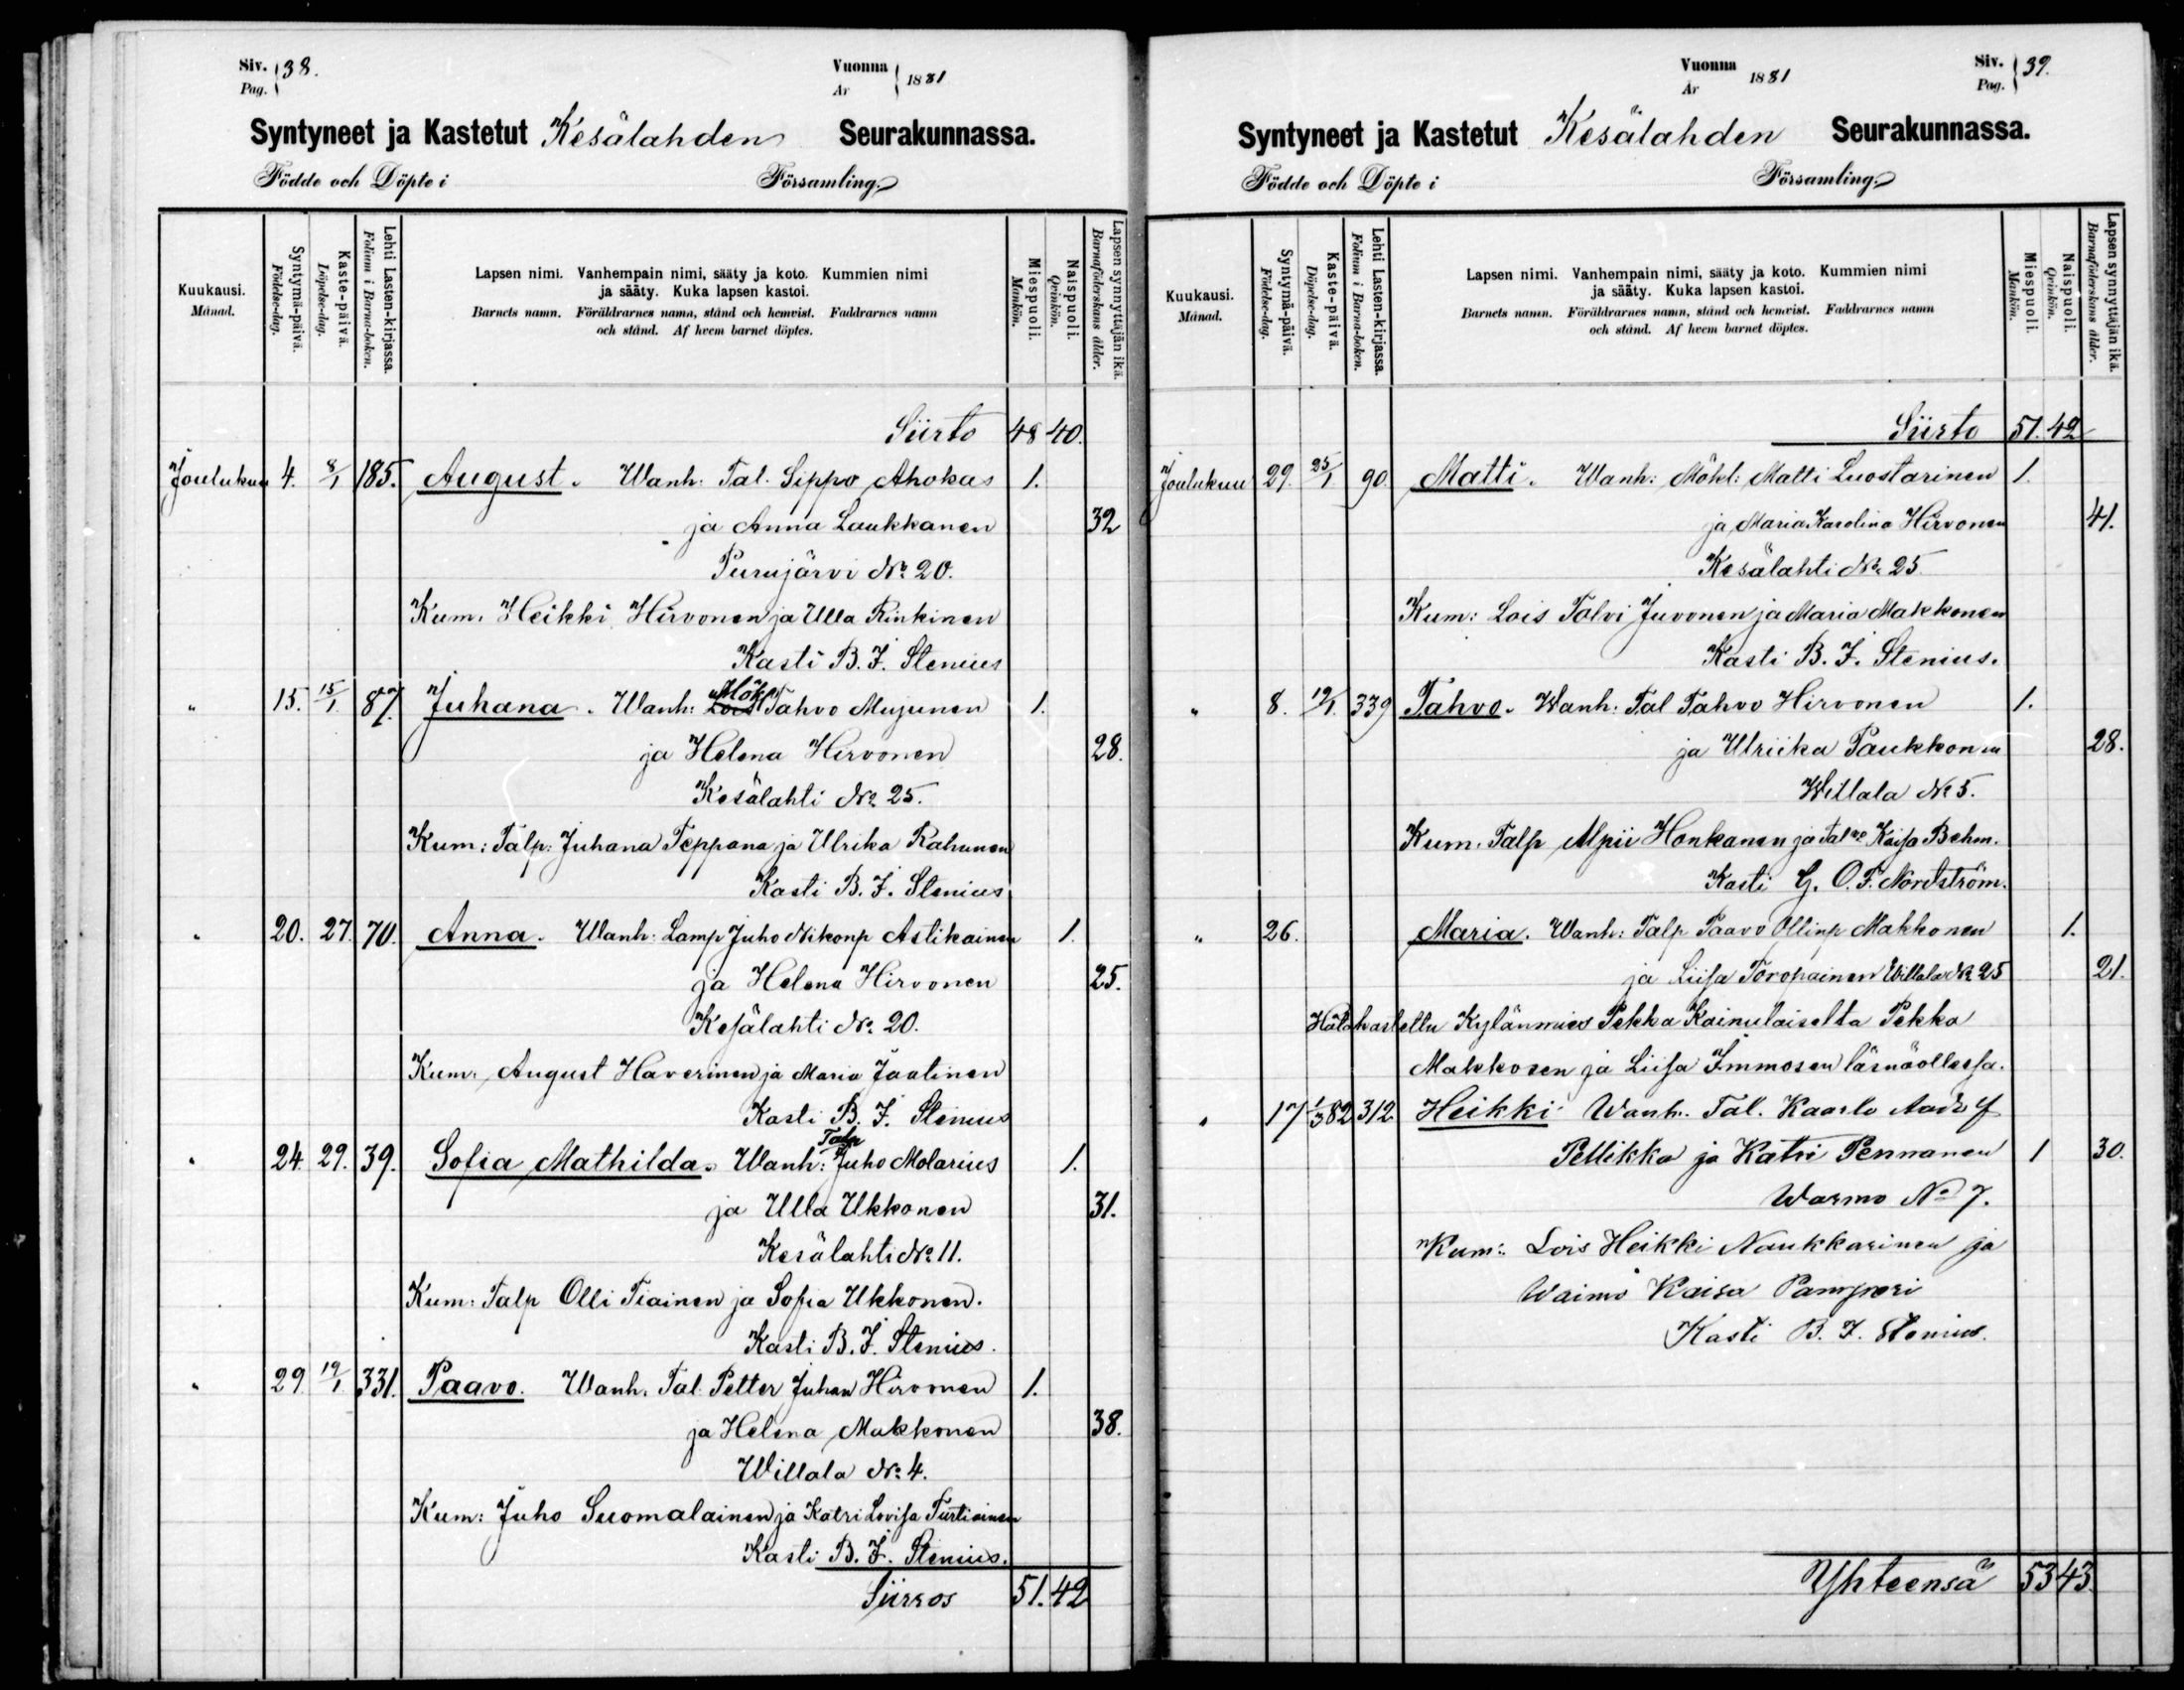 Siv. 38.
Pag.
Vuonna 1881
År
Syntyneet ja Kastetut Kesälahden Seurakunnassa.
Födde och Döpte i Församling.
Kuukausi.
Månad.
Syntymä-päivä.
Födelse-dag.
Kaste-päivä.
Döpelse-dag.
Lehti Lasten-kirjassa.
Folium i Barna-boken.
Lapsen nimi. Vanhempain nimi, sääty ja koto. Kummien nimi
ja sääty. Kuka lapsen kastoi.
Barnets namn. Föräldrarnes namn, stånd och hemvist. Faddrarnes namn
och stånd. Af hvem barnet döptes.
Miespuoli.
Mankön.
Naispuoli.
Qvinkön.
Lapsen synnyttäjän ikä.
Barnaföderskans ålder.
Siirto 48 40.
Joulukuu 4. 8/1 185. August. Wanh: Tal. Sippo Ahokas 1.
ja Anna Laukkanen 32
Purujärvi No 20.
Kum. Heikki Hirvonen ja Ulla Rinkinen
Kasti B. J. Stenius
" 15. 15/1 87. Juhana. Wanh: Mök Tahvo Mujunen 1.
ja Helena Hirvonen 28.
Kesälahti No 25.
Kum: Talp: Juhana Teppana ja Ulrika Rahunen
Kasti B. J. Stenius
" 20. 27. 70. Anna. Wanh: Lamp Juho Nikonp Astikainen 1.
ja Helena Hirvonen 25.
Kesälahti No 20.
Kum. August Haverinen ja Maria Jaatinen
Kasti B. J. Stenius
" 24. 29. 39. Sofia Mathilda. Wanh: Talp Juho Molarius 1.
ja Ulla Ukkonen 31.
Kesälahti No 11.
Kum: Talp Olli Tiainen ja Sofia Ukkonen.
Kasti B. J. Stenius.
" 29. 19/1 331. Paavo. Wanh. Tal. Petter Juhan Hirvonen 1.
ja Helena Makkonen 38.
Villala No 4.
Kum: Juho Suomalainen ja Katri Lovisa Turtiainen
Kasti B. J. Stenius.
Siirros 51. 42
Vuonna 1881
År
Siv. 39.
Pag.
Syntyneet ja Kastetut Kesälahden Seurakunnassa.
Födde och Döpte i Församling.
Kuukausi.
Månad.
Syntymä-päivä.
Födelse-dag.
Kaste-päivä.
Döpelse-dag.
Lehti Lasten-kirjassa.
Folium i Barna-boken.
Lapsen nimi. Vanhempain nimi, sääty ja koto. Kummien nimi
ja sääty. Kuka lapsen kastoi.
Barnets namn. Föräldrarnes namn, stånd och hemvist. Faddrarnes namn
och stånd. Af hvem barnet döptes.
Miespuoli.
Mankön.
Naispuoli.
Qvinkön.
Lapsen synnyttäjän ikä.
Barnaföderskans ålder.
Siirto 51. 42
Joulukuu 29. 25/1 90 Matti. Wanh: Mökl: Matti Luostarinen 1.
ja Maria Karolina Hirvonen 41.
Kesälahti No 25
Kum: Lois Talvi Juvonen ja Maria Makkonen
Kasti B. J. Stenius.
" 8. 19/1. 339 Tahvo. Wanh: Tal Tahvo Hirvonen 1.
ja Ulriika Paukkonen 28.
Willala No 5.
Kum. Talp Honkanen ja Kaisa Behm.
Kasti G. O. F. Nordström.
" 26. Maria. Wanh: Talp Paavo Ollinp Makkonen 1.
ja Liisa Toropainen Villala No 25 21.
Hätäkastettu Kylänmies Pekka Kainulaiselta Pekka
Makkosen ja Liisa Immosen läsnäollessa.
" 17 1/3 82 312 Heikki Wanh. Tal. Kaarlo
Pellikka ja Katri Pennanen 1 30.
Warmo No 7.
Kum: Lois Heikki Naukkarinen ja
Waimo Kaisa Pamppri
Kasti B. J. Stenius.
Yhteensä 53 43.